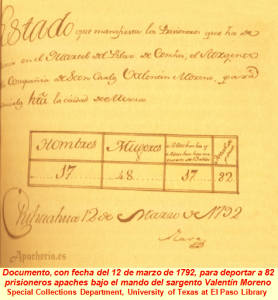 Estado que manifiesta los Prisioneros que ha de
en el del Pilar de Conchos, el Sargento
Compañia de San Carlos Valentin Moreno,
hta la ciudad de Mexico
Hombres Mugeres
17 48 17 82
Chihuahua 12 de Marzo de 1792
Nava
Apacheria.es
Documento, con fecha del 12 de marzo de 1792, para deportar a 82
prisioneros apaches bajo el mando del sargento Valentín Moreno
Special Collections Department, University of Texas at El Paso Library